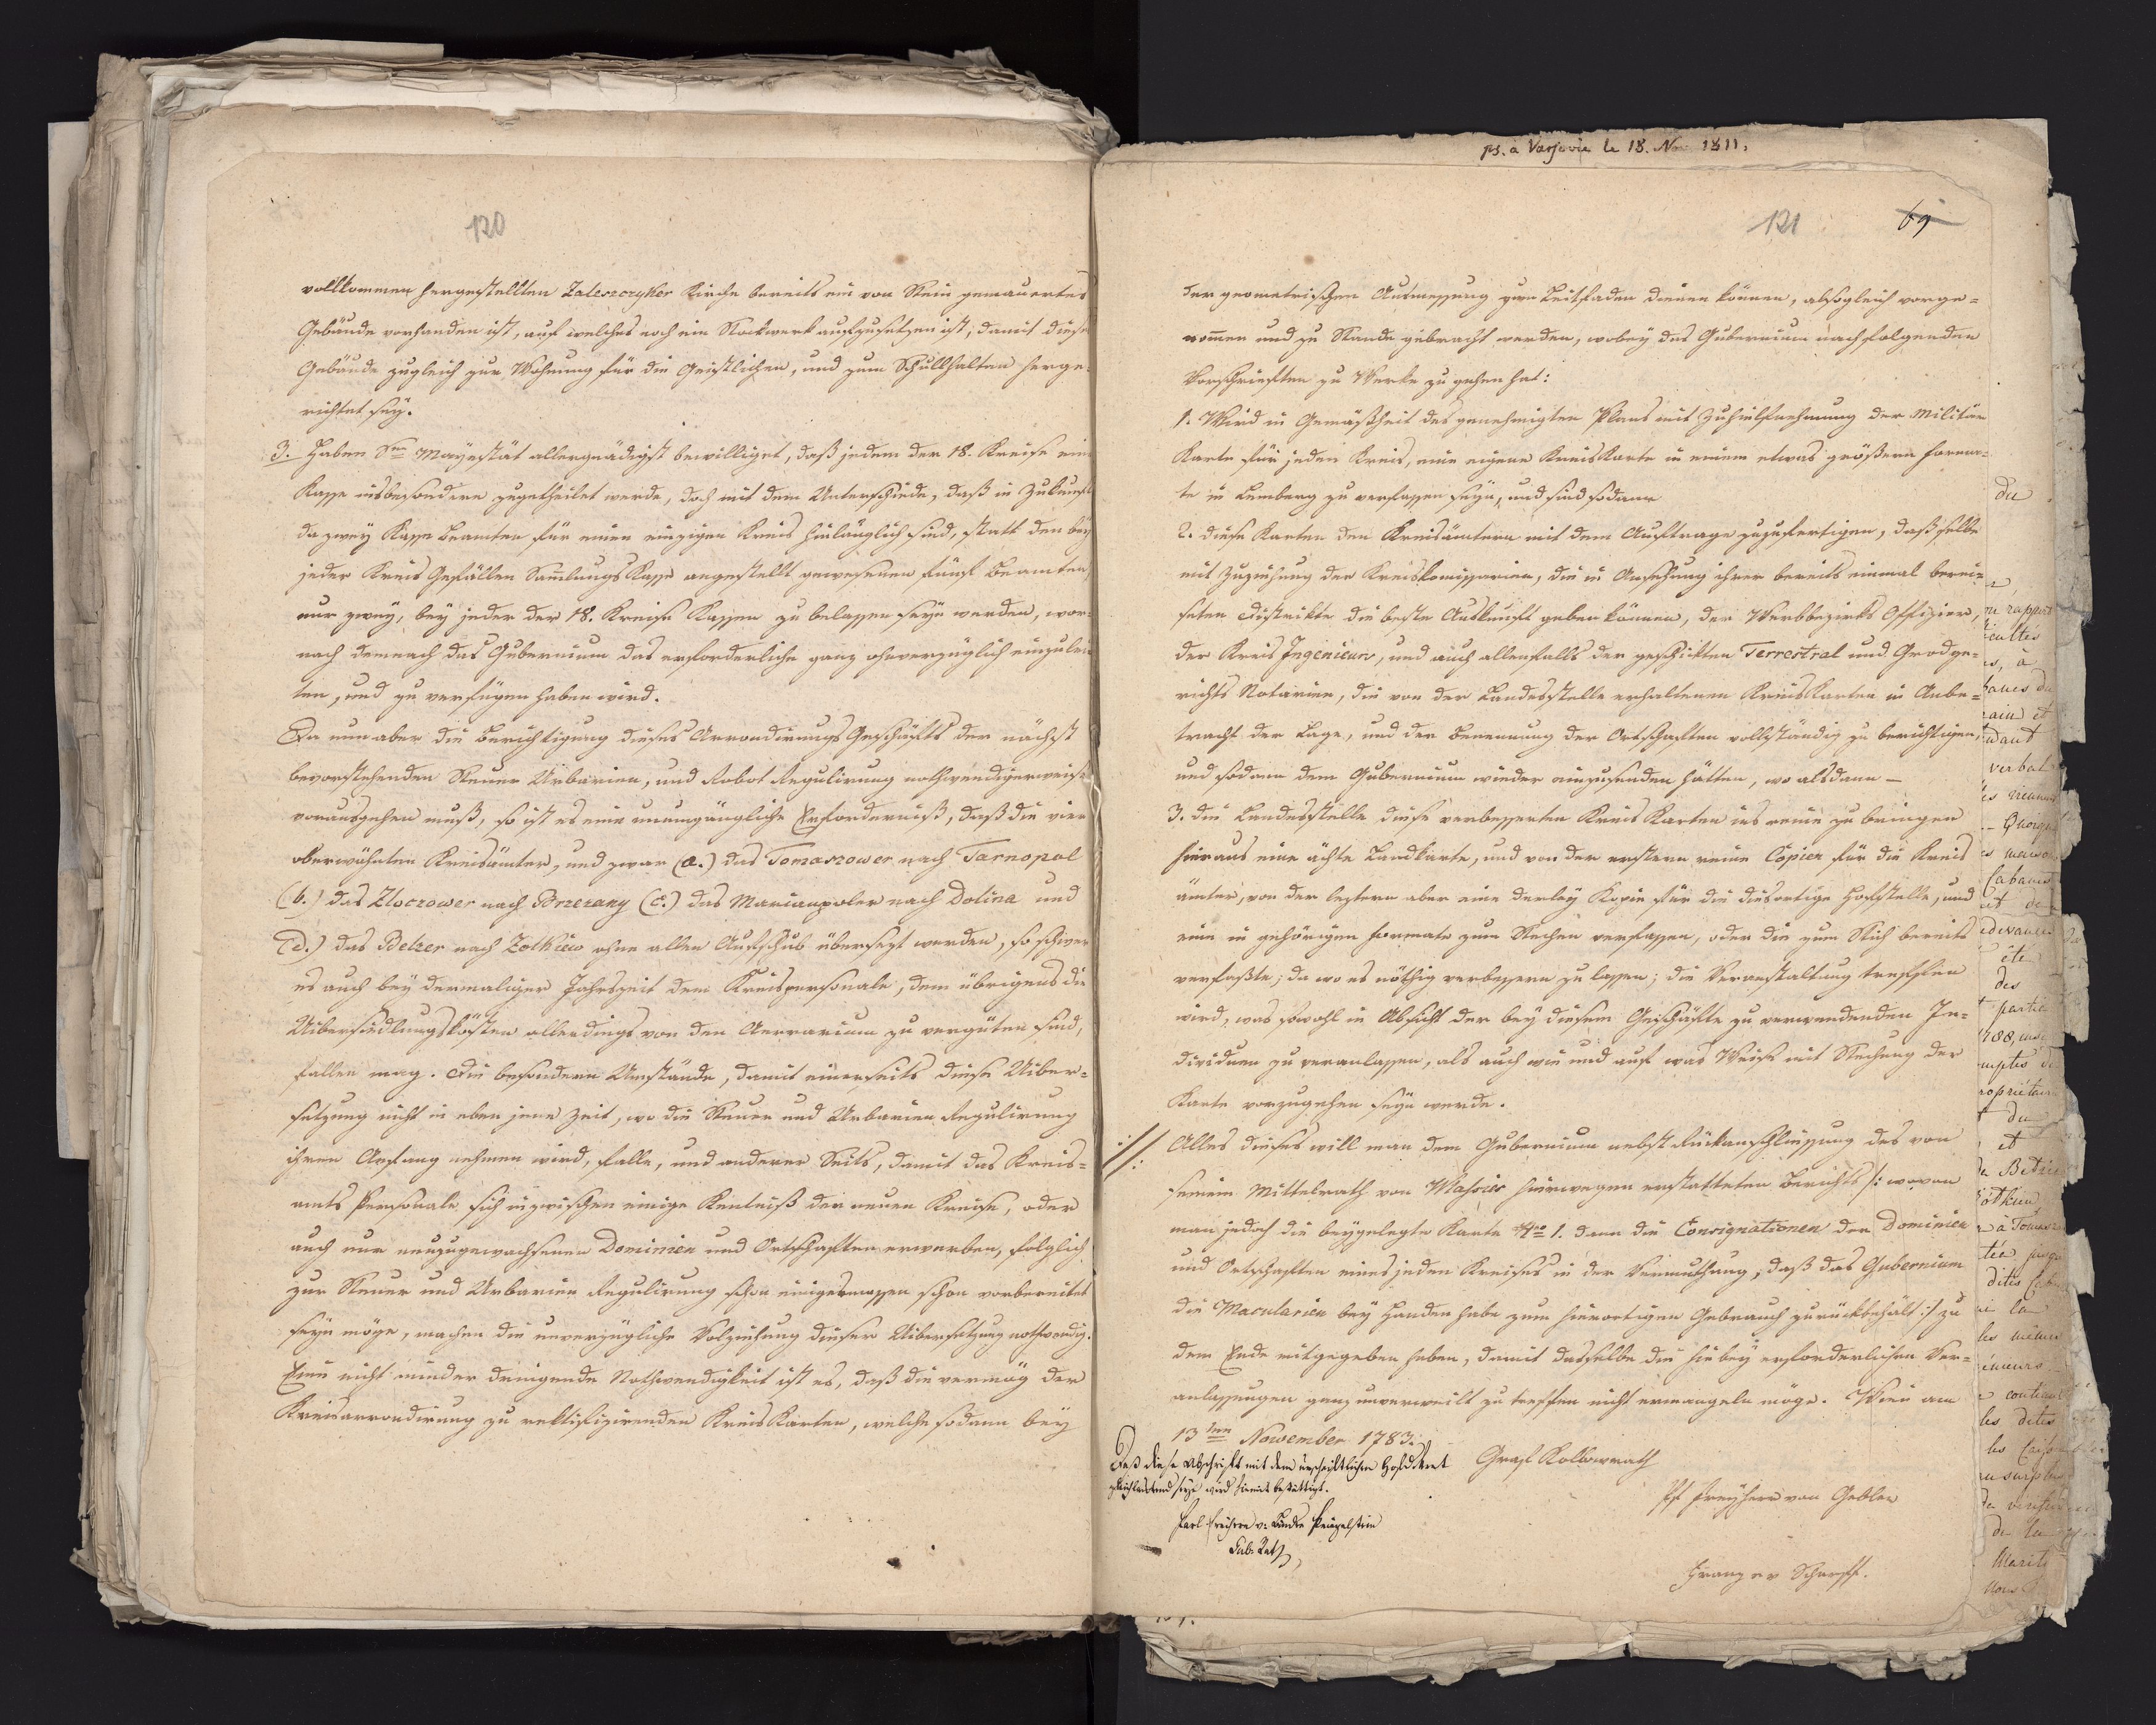 120
vollkommen hergestellten Zaleszczyker Kirche bereits ein von Stein gemauertes
Gebäude vorhanden ist, auf welches noch ein Stockwerk aufzusetzen ist, damit diese
Gebäude zugleich zur Wohnung für die Geistlichen, und zum Schullhalten herge-
richtet sey.
3. Haben Se Mayestät allergnädigst bewilliget, daß jedem der 18. Kreise eine
Kasse insbesondere zugetheilet werde, doch mit dem Unterschiede, daß in Zukunft
da zwey Kasse Beamten für einen einzigen Kreis hinlänglich sind, statt den bey
jeder Kreis Gefällen Samlungs Kasse angestellt gewesenen fünf Beamten,
nur zwey, bey jeder der 18. Kreise Kassen zu belassen seyn werden, wor-
nach demnach das Gubernium das erforderliche ganz ohnverzüglich einzulei-
ten, und zu verfügen haben wird.
Da nun aber die Berichtigung dieses Arrondirungs Geschäfts der nächst
bevorstehenden Steuer Urbarien, und Robot Regulirung nothwendigerweise
vorausgehen muß, so ist es eine unumgängliche Erforderniß, daß die vier
oberwähnten Kreisämter, und zwar (a.) das Tomaszower nach Tarnopol
(b.) das Zloczower nach Brzezany (c.) das Marianpoler nach Dolina und
(d.) das Belzer nach Zolkiew ohne allen Aufschub übersezt werden, so schwer
es auch bey dermaliger Jahrszeit dem Kreispersonale, dem übrigens die
Uibersiedlungskösten allerdings von den Aerrarium zu vergüten sind,
fallen mag. Die besondern Umstände, damit einerseits diese Uiber-
setzung nicht in eben jene Zeit, wo die Steuer und Urbarien Regulirung
ihren Anfang nehmen wird, falle, und anderer Seits, damit das Kreis-
amts Personale sich inzwischen einige Kentniß der neuen Kreise, oder
auch nur neuzugewachsenen Dominien und Ortschaften erwerben, folglich
zur Steuer und Urbarien Regulirung schon einigermassen schon vorbereitet
seyn möge, machen die unverzügliche Volziehung dieser Uibersetzung nothwendig.
Eine nicht minder dringende Nothwendigkeit ist es, daß die vermög der
Kreisarrondirung zu rektifizirenden Kreis Karten, welche sodann bey
ps. à Varsovie le 18. Nov 1811.
121 69
der geometrischen Ausmessung zum Leitfaden dienen können, alsogleich vorge-
nommen und zu Stande gebracht werden, wobey das Gubernium nachfolgenden
Vorschrieften zu Werke zu gehen hat:
1. Wird in Gemäßheit des genehmigten Plans mit Zuhilfnehmung der Militär
Karte für jeden Kreis, eine eigene Kreis Karte in einem etwas größern Forma-
te in Lemberg zu verfassen seyn, und sind sodann
2. diese Karten den Kreisämtern mit dem Auftrage zuzufertigen, daß selbe
mit Zuziehung der Kreiskomissarien, die in Ansehung ihrer bereits einmal berei-
seten Distrikte die beste Auskunft geben können, der Werbbezirks Offizier,
der Kreis Ingenieur, und auch allenfalls der geschikten Terrestral und Grodge-
richts Notarien, die von der Landesstelle erhaltenen Kreis Karten in Anbe-
tracht der Lage, und der Benennung der Ortschaften vollständig zu berichtigen,
und sodann dem Gubernium wieder einzusenden hätten, wo alsdann –
3. die Landesstelle diese verbesserten Kreis Karten ins reine zu bringen
hieraus eine ächte Landkarte, und von der erstern reine Copien für die Kreis
ämter, von der leztern aber eine derley Kopie für die diesortige Hofstelle, und
eine in gehörigen Formate zum Stechen verfassen, oder die zum Stich bereits
verfaßte; da wo es nöthig verbessern zu lassen; die Veranstaltung treffen
wird, was sowohl in Absicht der bey diesem Geschäfte zu verwendenden In-
dividuen zu veranlassen, als auch wie und auf was Weise mit Stechung der
Karte vorzugehen seyn werde.
Alles dieses will man dem Gubernium nebst Rückanschliessung des von
seinem Mittelrath von hierwegen erstatteten Berichts /: wovon
man jedoch die beygelegte Karte Nro 1. dann die Consignationen der Dominien
und Ortschaften eines jeden Kreises in der Vermuthung, daß das Gubernium
die Macularien bey Handen habe zum hierortigen Gebrauch zurückbehält :/ zu
dem Ende mitgegeben haben, damit dasselbe die hiebey erforderlichen Ver-
anlassungen ganz unverweilt zu treffen nicht ermangeln möge. Wien am
13ten November 1783.
Daß diese Abschrift mit dem urschriftlichen Hofdekret
gleichlautend seye wird hiemit bestättiget.
Graf Kollowrath
Freyherr von Gebler
Gub: Rath
Franz v Scharff.
du
rapport
icultés
s, à
verbal
Quoique
été
des
partie
1788,
du
et